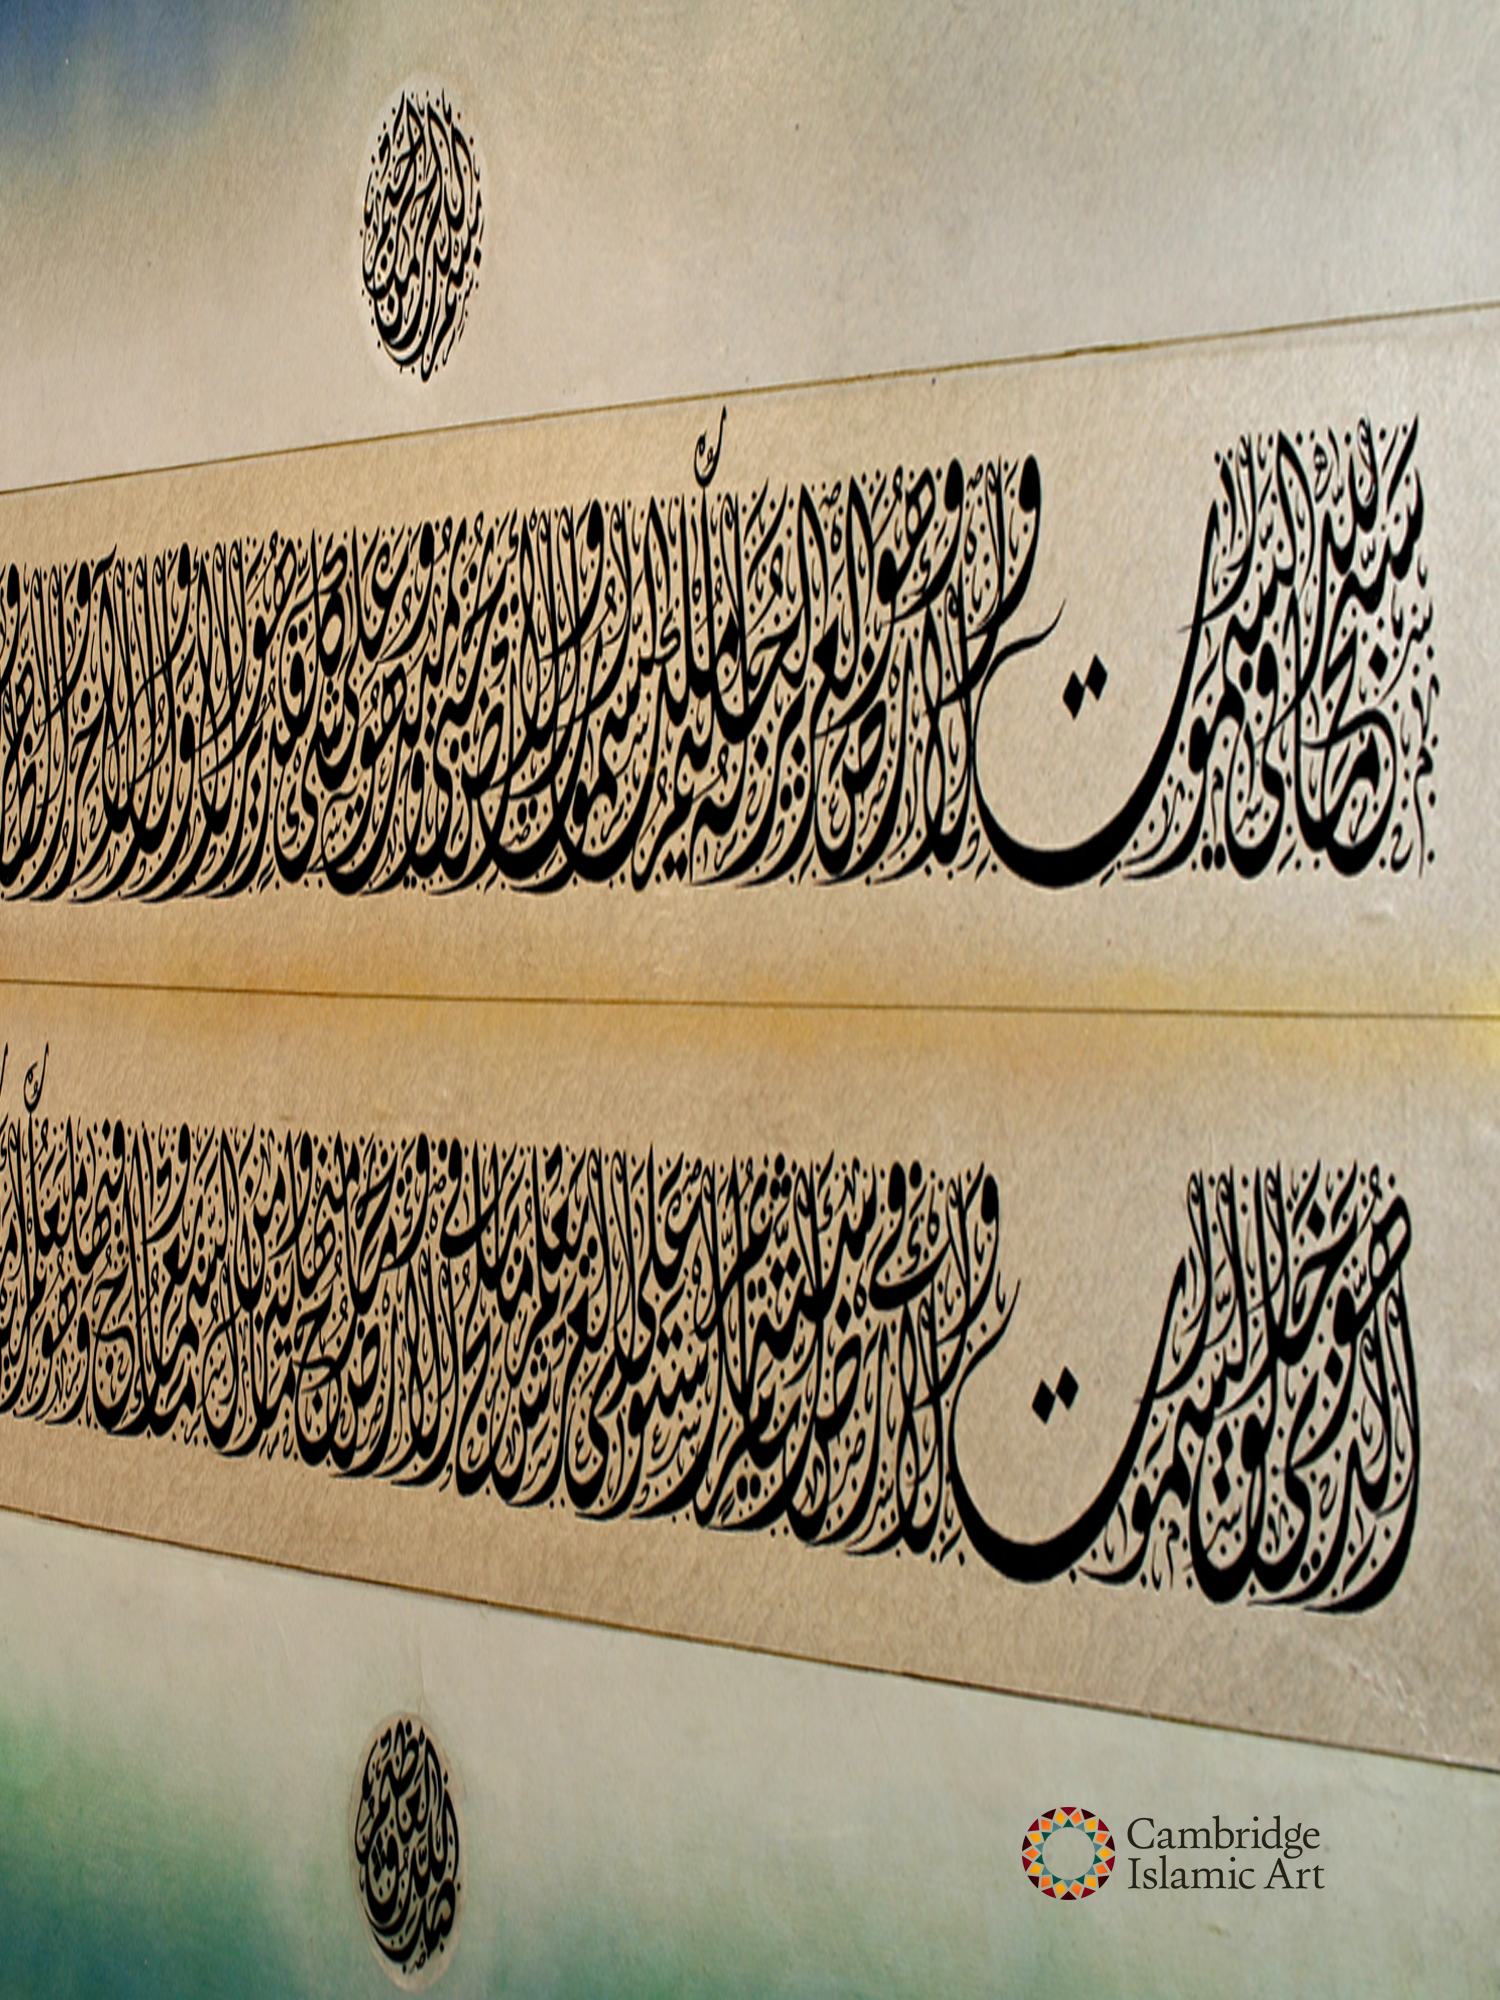 بسم الله الرحمن الرحيم
سبح لله ما في السموت والارض وهو العزيز الحكيم له ملك السموت والارض يحيي ويميت وهو على كل شيء قدير هو الاول والاخر
هو الذي خلق السموت والارض في ستة ايام ثم استوى على العرش يعلم ما يلج في الارض وما يخرج منها وما ينزل من السماء وما يعرج فيها وهو معكم
صدق الله العظيم
Cambridge
Islamic Art